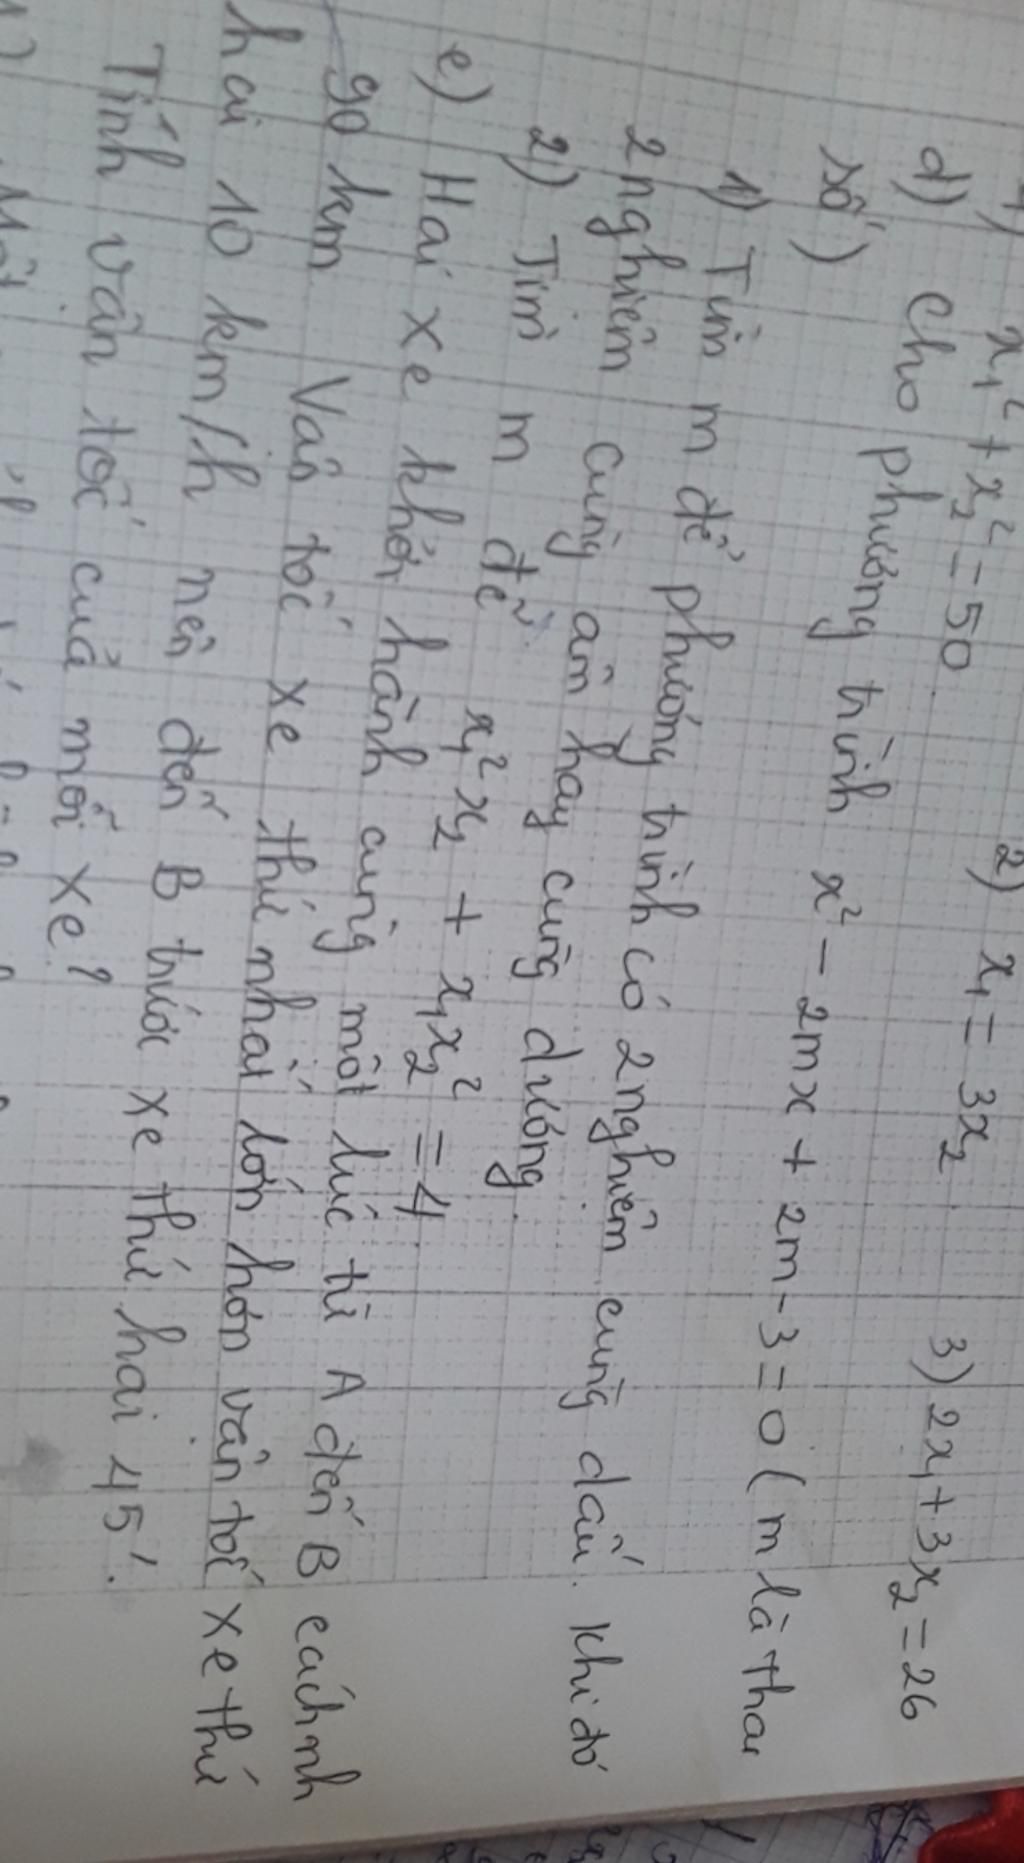 x₁² + x₂² = 50. 2) x₁ = 3x₂ 3) 2x₁ + 3x₂ = 26
d) Cho phương trình x² - 2mx + 2m - 3 = 0 (m là tham
số)
1) Tìm m để phương trình có 2 nghiệm cùng dấu. Khi đó
2 nghiệm cùng âm hay cùng dương.
2) Tìm m để x₁²x₂ + x₁x₂² = 4
e) Hai xe khởi hành cùng một lúc từ A đến B cách nh
90 km. Vận tốc xe thứ nhất lớn hơn vận tốc xe thứ
hai 10 km/h nên đến B trước xe thứ hai 45'.
Tính vận tốc của mỗi xe?